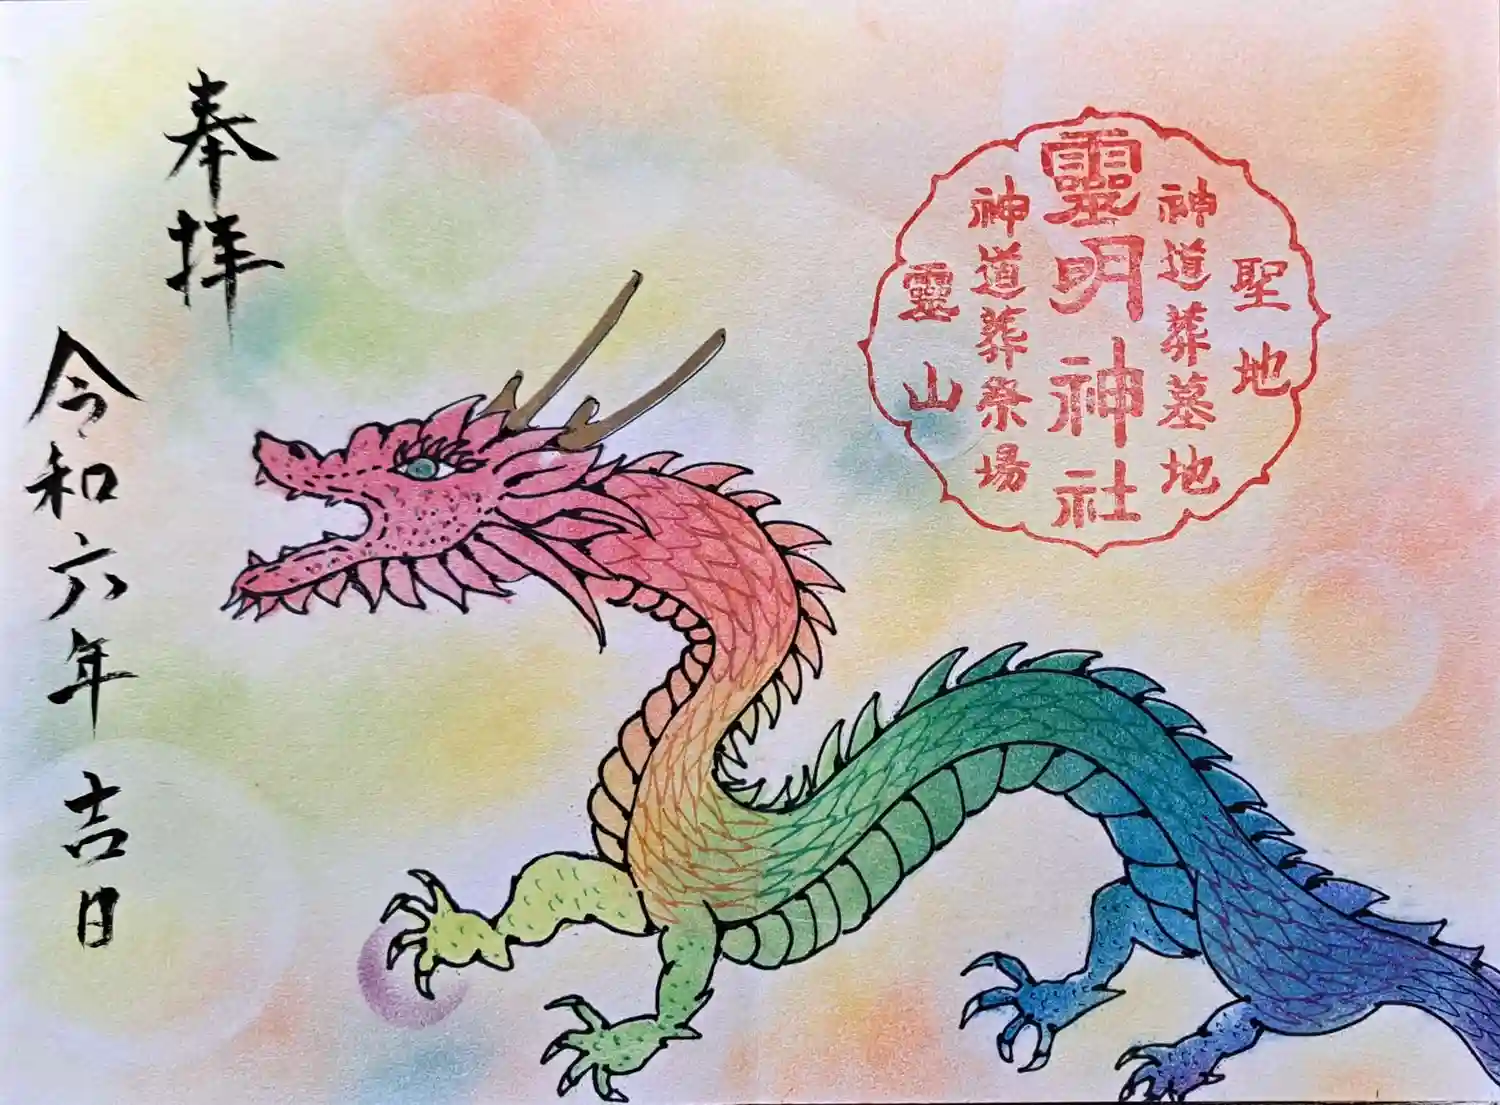 奉拝
令和六年 吉日
聖地
神道葬墓地
靈明神社
神道葬祭場
靈山